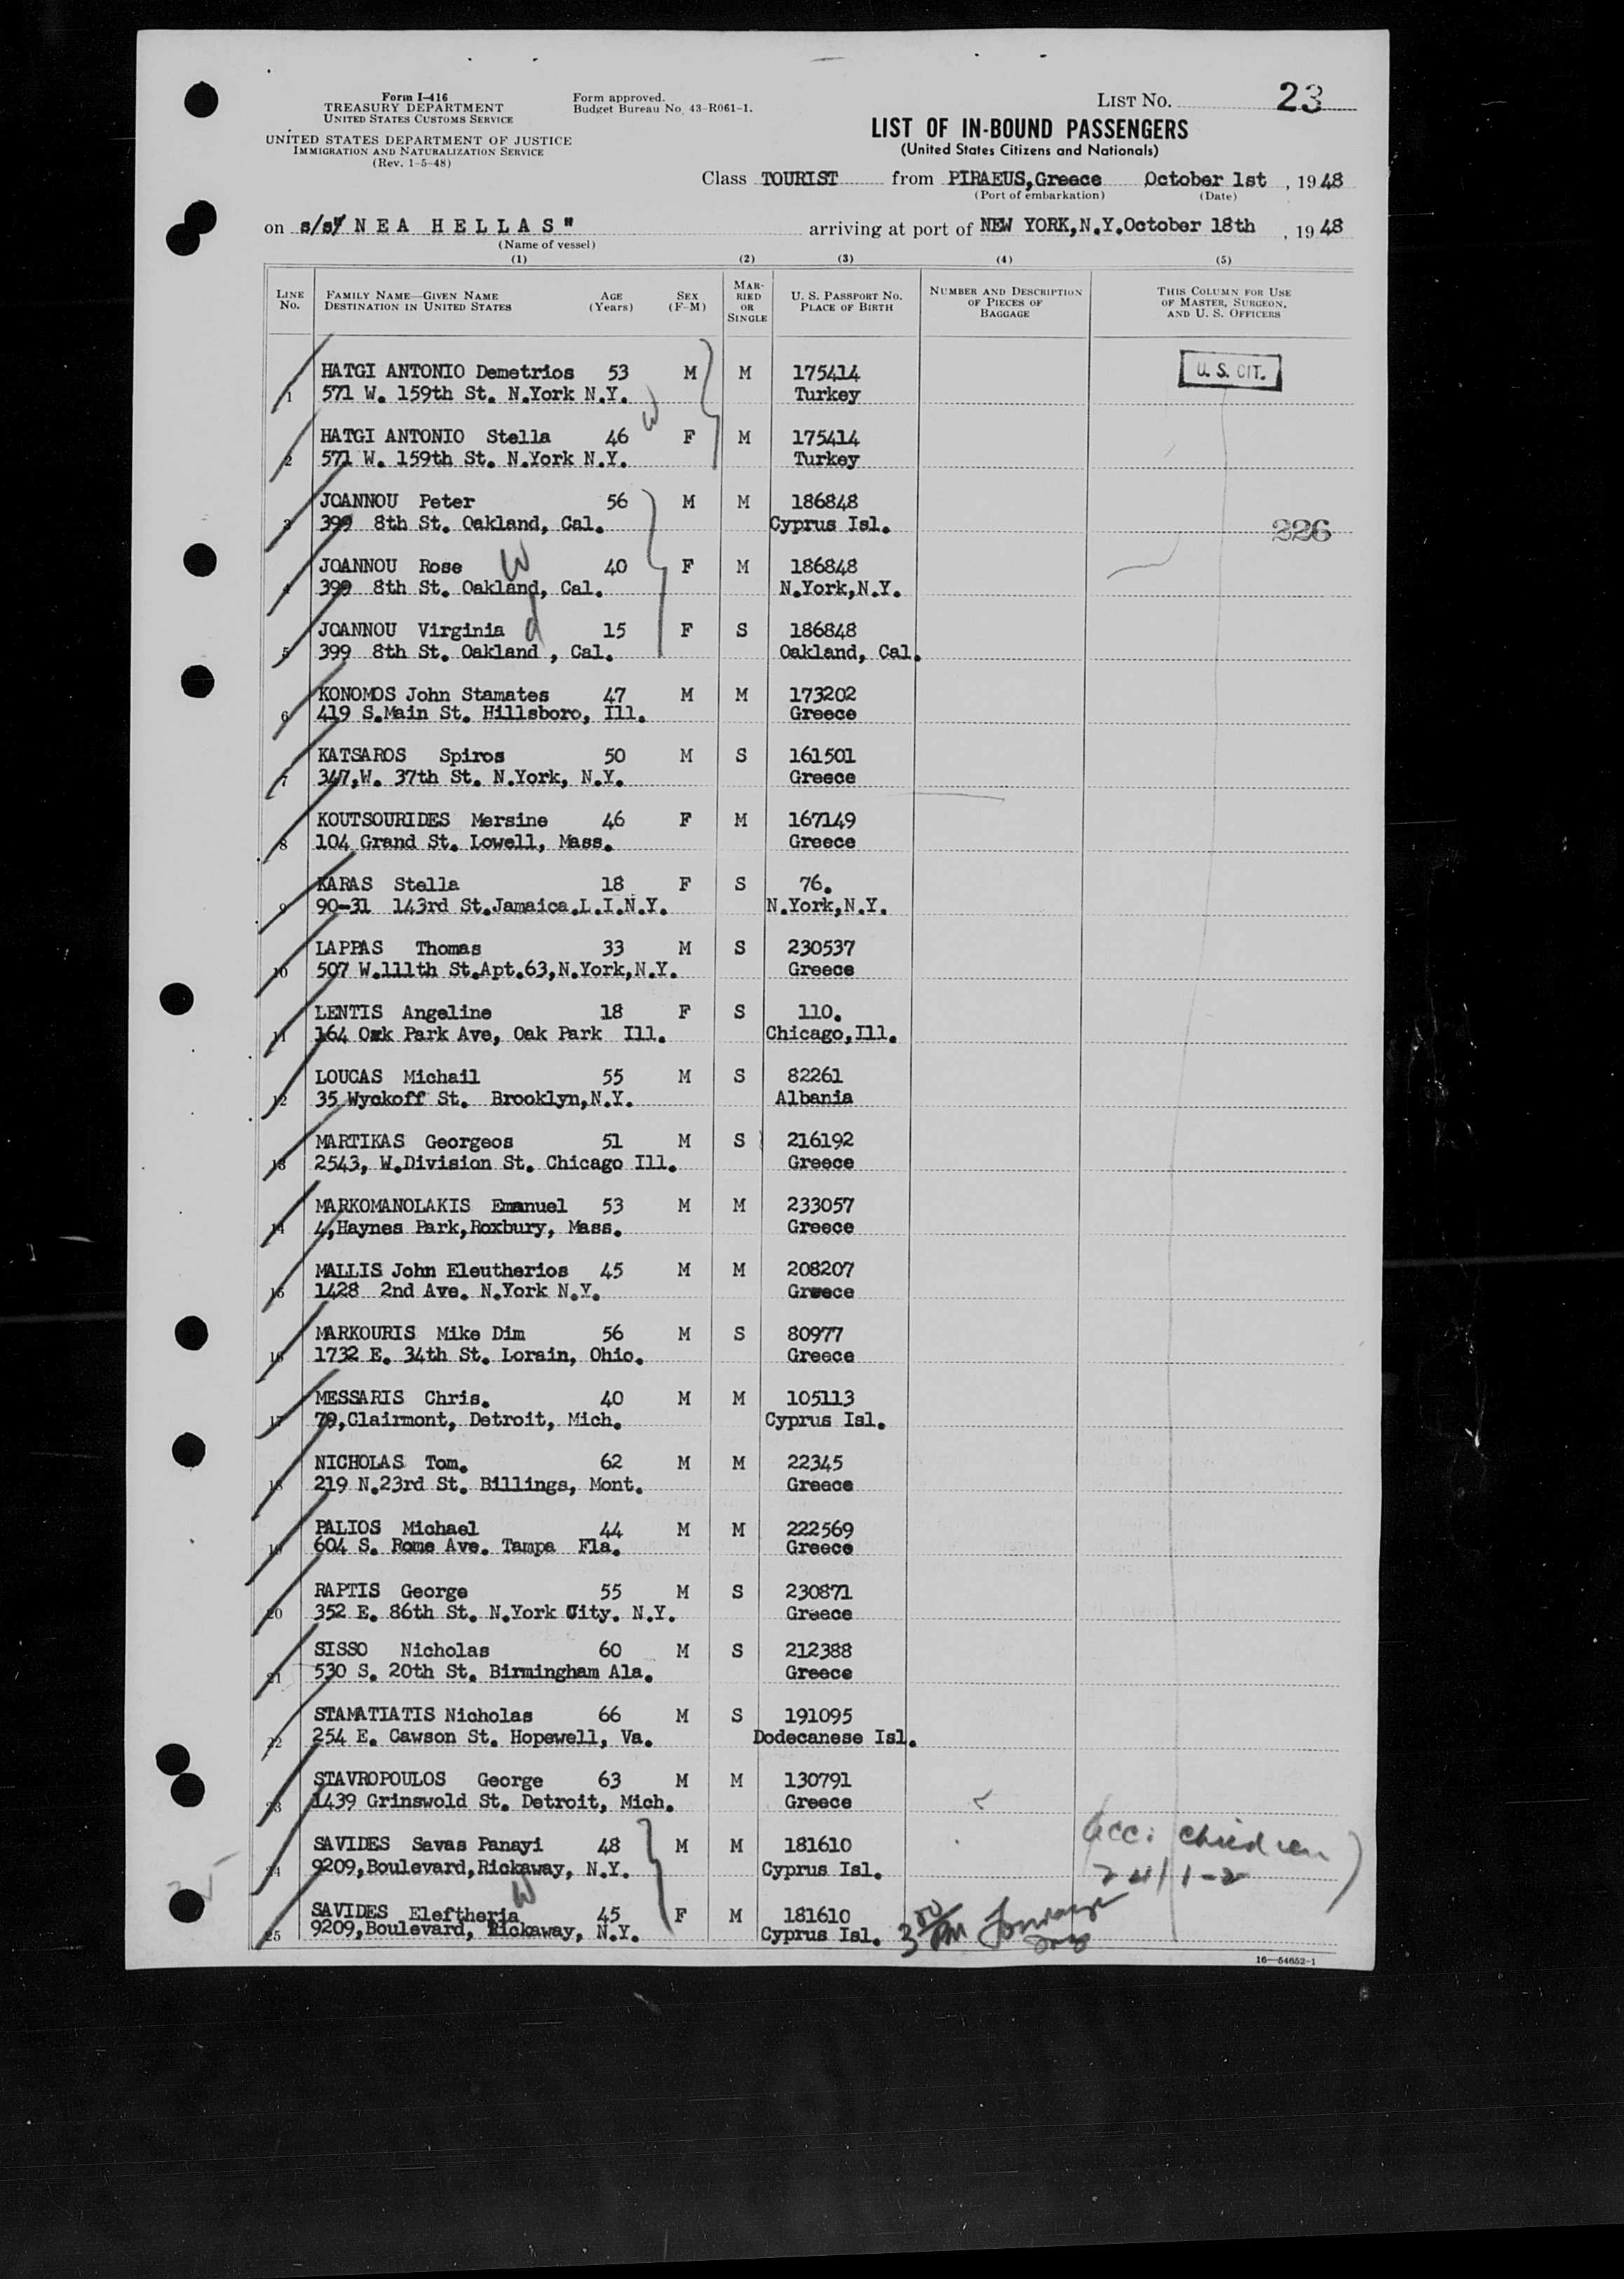 Form I-416
TREASURY DEPARTMENT
UNITED STATES CUSTOMS SERVICE
UNITED STATES DEPARTMENT OF JUSTICE
IMMIGRATION AND NATURALIZATION SERVICE
(Rev. 1-5-48)
Form approved.
Budget Bureau No. 43-R061-1.
LIST NO. 23
LIST OF IN-BOUND PASSENGERS
(United States Citizens and Nationals)
Class TOURIST from PIRAEUS,Greece October 1st , 1948
(Port of embarkation) (Date)
on s/s "NEA HELLAS" arriving at port of NEW YORK,N.Y.October 18th , 1948
(Name of vessel)
(1) (2) (3) (4) (5)
LINE NO. FAMILY NAME—GIVEN NAME DESTINATION IN UNITED STATES AGE (Years) SEX (F-M) MARRIED OR SINGLE U. S. PASSPORT NO. PLACE OF BIRTH NUMBER AND DESCRIPTION OF PIECES OF BAGGAGE THIS COLUMN FOR USE OF MASTER, SURGEON, AND U. S. OFFICERS
HATGI ANTONIO Demetrios 53 M M 175414 U. S. CIT.
1 571 W. 159th St. N.York N.Y. Turkey
W
HATGI ANTONIO Stella 46 F M 175414
2 571 W. 159th St. N.York N.Y. Turkey
JOANNOU Peter 56 M M 186848
3 399 8th St. Oakland, Cal. Cyprus Isl. 326
JOANNOU Rose W 40 F M 186848
4 399 8th St. Oakland, Cal. N.York,N.Y.
JOANNOU Virginia d 15 F S 186848
5 399 8th St. Oakland , Cal. Oakland, Cal.
KONOMOS John Stamates 47 M M 173202
6 419 S.Main St. Hillsboro, Ill. Greece
KATSAROS Spiros 50 M S 161501
7 347,W. 37th St. N.York, N.Y. Greece
KOUTSOURIDES Mersine 46 F M 167149
8 104 Grand St. Lowell, Mass. Greece
KARAS Stella 18 F S 76.
9 90-31 143rd St.Jamaica.L.I.N.Y. N.York,N.Y.
LAPPAS Thomas 33 M S 230537
10 507 W.111th St.Apt.63,N.York,N.Y. Greece
LENTIS Angeline 18 F S 110.
11 164 Oak Park Ave, Oak Park Ill. Chicago,Ill.
LOUCAS Michail 55 M S 82261
12 35 Wyckoff St. Brooklyn,N.Y. Albania
MARTIKAS Georgeos 51 M S 216192
13 2543, W.Division St. Chicago Ill. Greece
MARKOMANOLAKIS Emanuel 53 M M 233057
14 4,Haynes Park,Roxbury, Mass. Greece
MALLIS John Eleutherios 45 M M 208207
15 1428 2nd Ave. N.York N.Y. Greece
MARKOURIS Mike Dim 56 M S 80977
16 1732 E. 34th St. Lorain, Ohio. Greece
MESSARIS Chris. 40 M M 105113
17 79,Clairmont, Detroit, Mich. Cyprus Isl.
NICHOLAS Tom. 62 M M 22345
18 219 N.23rd St. Billings, Mont. Greece
PALIOS Michael 44 M M 222569
19 604 S. Rome Ave. Tampa Fla. Greece
RAPTIS George 55 M S 230871
20 352 E. 86th St. N.York City. N.Y. Greece
SISSO Nicholas 60 M S 212388
21 530 S. 20th St. Birmingham Ala. Greece
STAMATIATIS Nicholas 66 M S 191095
22 254 E. Cawson St. Hopewell, Va. Dodecanese Isl.
STAVROPOULOS George 63 M M 130791
23 1439 Grinswold St. Detroit, Mich. Greece
SAVIDES Savas Panayi 48 M M 181610 acc: children
24 9209,Boulevard,Rickaway, N.Y. Cyprus Isl.
W
SAVIDES Eleftheria 45 F M 181610
25 9209,Boulevard, Rickaway, N.Y. Cyprus Isl.
16—54652-1